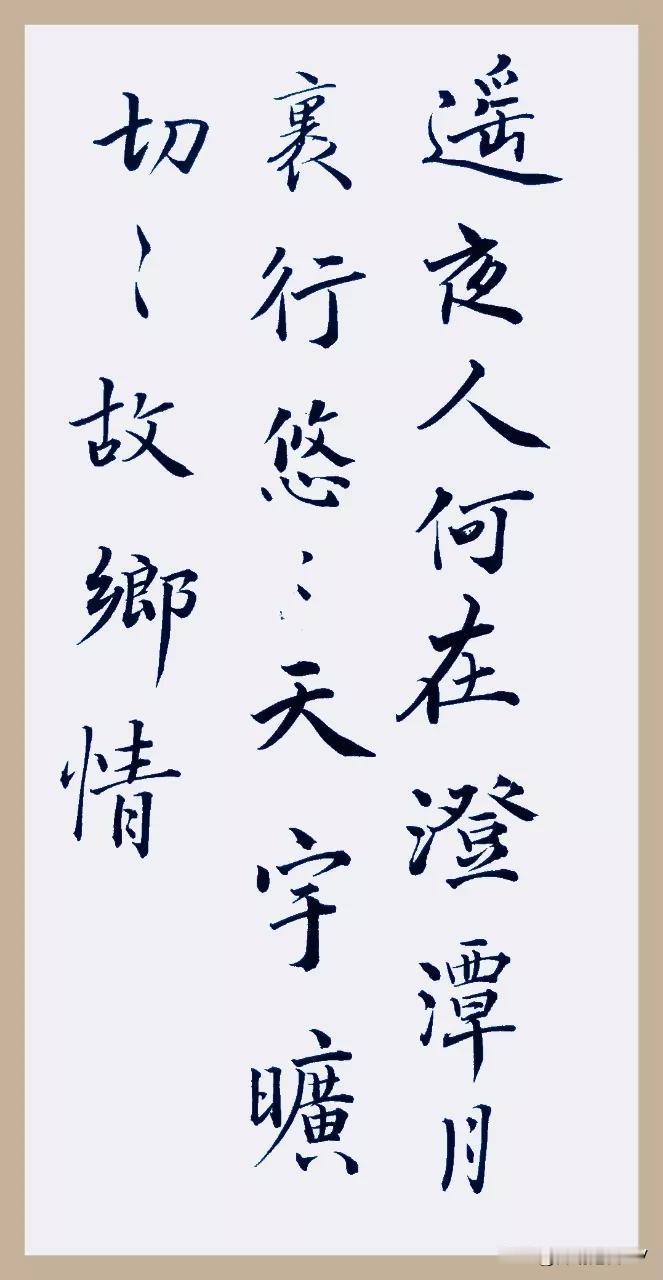 遥夜人何在澄潭月
裏行悠〻天宇曠
切〻故鄉情